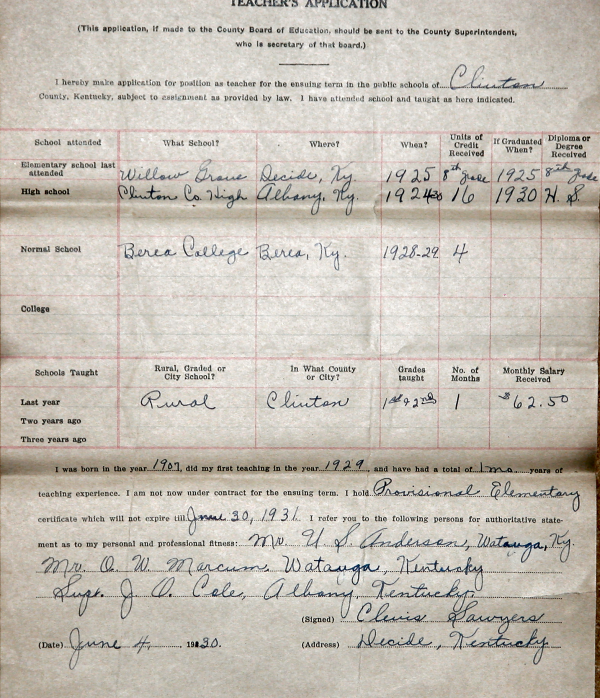 TEACHER'S APPLICATION
(This application, if made to the County Board of Education, should be sent to the County Superintendent,
who is secretary of that board.)
I hereby make application for position as teacher for the ensuing term in the public schools of Clinton
County, Kentucky, subject to assignment as provided by law. I have attended school and taught as here indicated.
School attended What School? Where? When? Units of Credit Received If Graduated When? Diploma or Degree Received
Elementary school last attended Willow Grove Decide, Ky. 1925 8th grade 1925 8th grade
High school Clinton Co. High Albany, Ky. 1924-30 16 1930 H. S.
Normal School Berea College Berea, Ky. 1928-29 4
College
Schools Taught Rural, Graded or City School? In What County or City? Grades taught No. of Months Monthly Salary Received
Last year Rural Clinton 1st & 2nd 1 $62.50
Two years ago
Three years ago
I was born in the year 1907, did my first teaching in the year 1929, and have had a total of 1 mo. years of
teaching experience. I am not now under contract for the ensuing term. I hold Provisional Elementary
certificate which will not expire till June 30, 1931. I refer you to the following persons for authoritative state-
ment as to my personal and professional fitness: Mr. U. S. Anderson, Watauga, Ky.
Mr. O. W. Marcum, Watauga, Kentucky
Supt. J. O. Cole, Albany, Kentucky.
(Signed) Clevis Sawyers
(Date) June 4, 1930. (Address) Decide, Kentucky